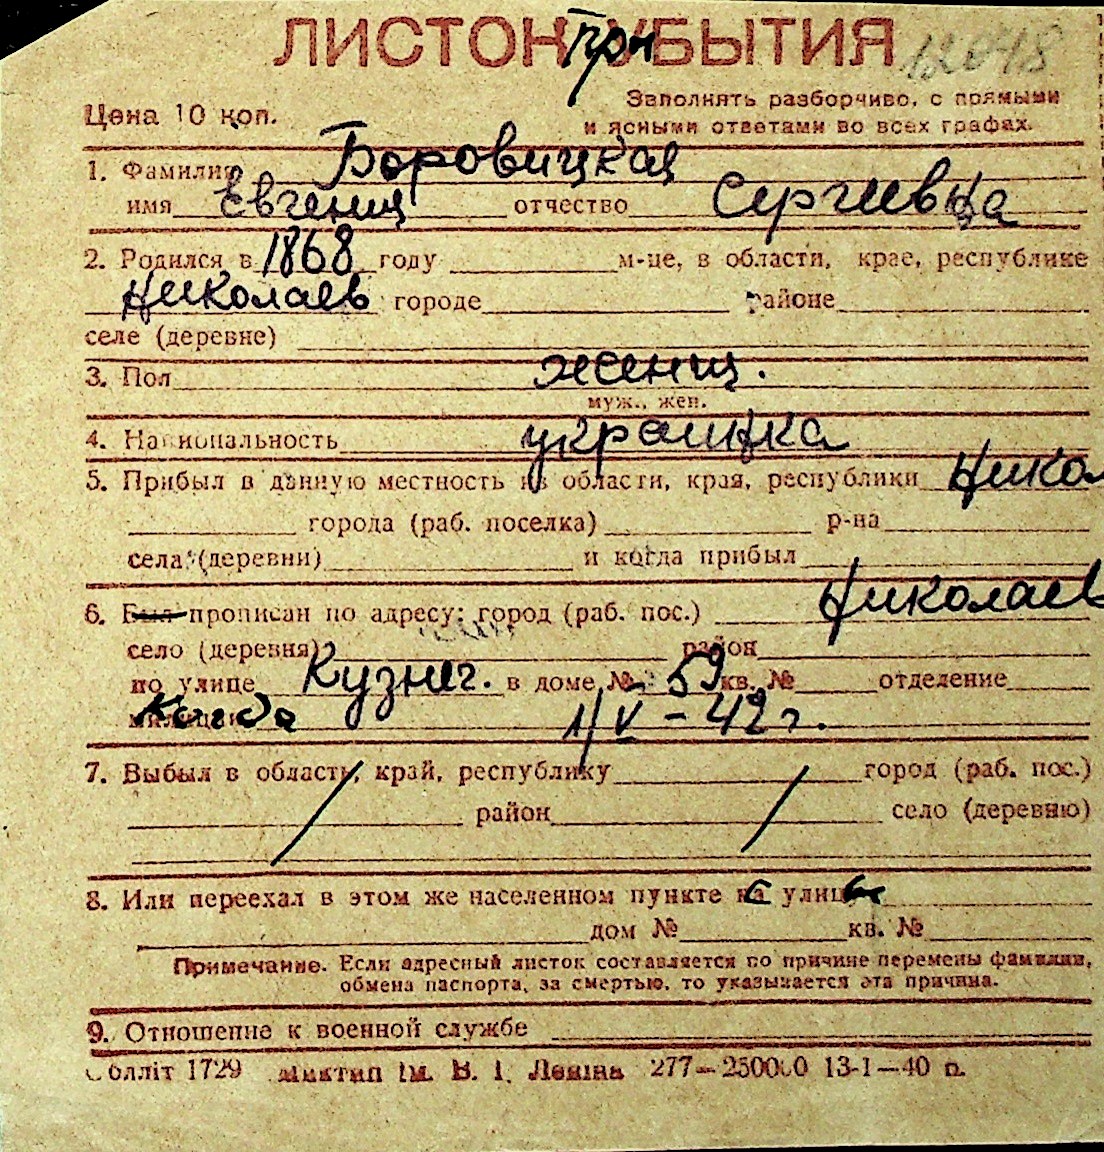 ЛИСТОК При УБЫТИЯ 12048
Цена 10 коп.
Заполнять разборчиво, с прямыми
и ясными ответами во всех графах.
1. Фамилия Боровицкая
имя Евгения отчество Сергиевна
2. Родился в 1868 году м-це, в области, крае, республике
Николаев городе районе
селе (деревне)
3. Пол женщ.
муж., жен.
4. Национальность украинка
5. Прибыл в данную местность из области, края, республики Никол
города (раб. поселка) р-на
села (деревни) и когда прибыл
6. Был прописан по адресу: город (раб. пос.) Николаев
село (деревня) район
по улице Кузнеч. в доме № 59 кв. № отделение
милиции Когда 1/V – 42 г.
7. Выбыл в область, край, республику город (раб. пос.)
район село (деревню)
8. Или переехал в этом же населенном пункте с улицы
дом № кв. №
Примечание. Если адресный листок составляется по причине перемены фамилии,
обмена паспорта, за смертью, то указывается эта причина.
9. Отношение к военной службе
Облліт 1729 ім. В. І. Леніна 277—250000 13-1—40 р.